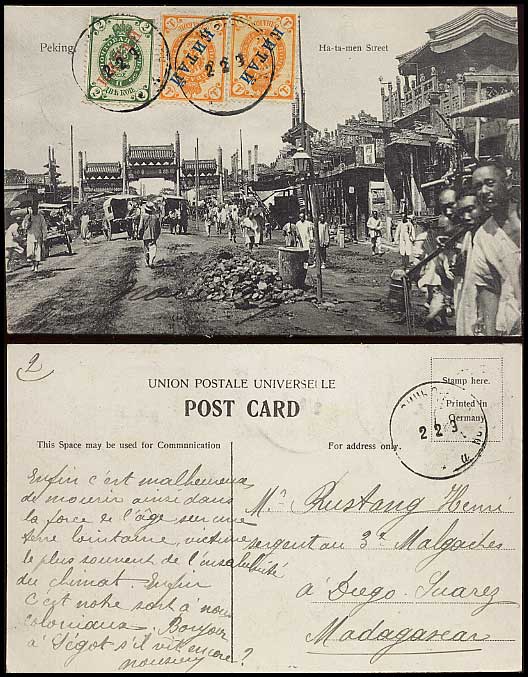 Peking.
Ha-ta-men Street
КИТАЙ
КИТАЙ
2 2 9
2
UNION POSTALE UNIVERSELLE
POST CARD
Stamp here.
Printed in
Germany
This Space may be used for Communication
For address only.
2 2 9
Enfin c'est malheureux
de mourir ainsi dans
la force de l'âge sur une
terre lointaine, victime
le plus souvent de l'insalubrité
du climat. Enfin
c'est notre sort à nous
coloniaux. Bonjour
à Ségot s'il vit encore?
Mr Rustang Henri
sergent au 3e Malgaches
à Diego-Suarez
Madagascar